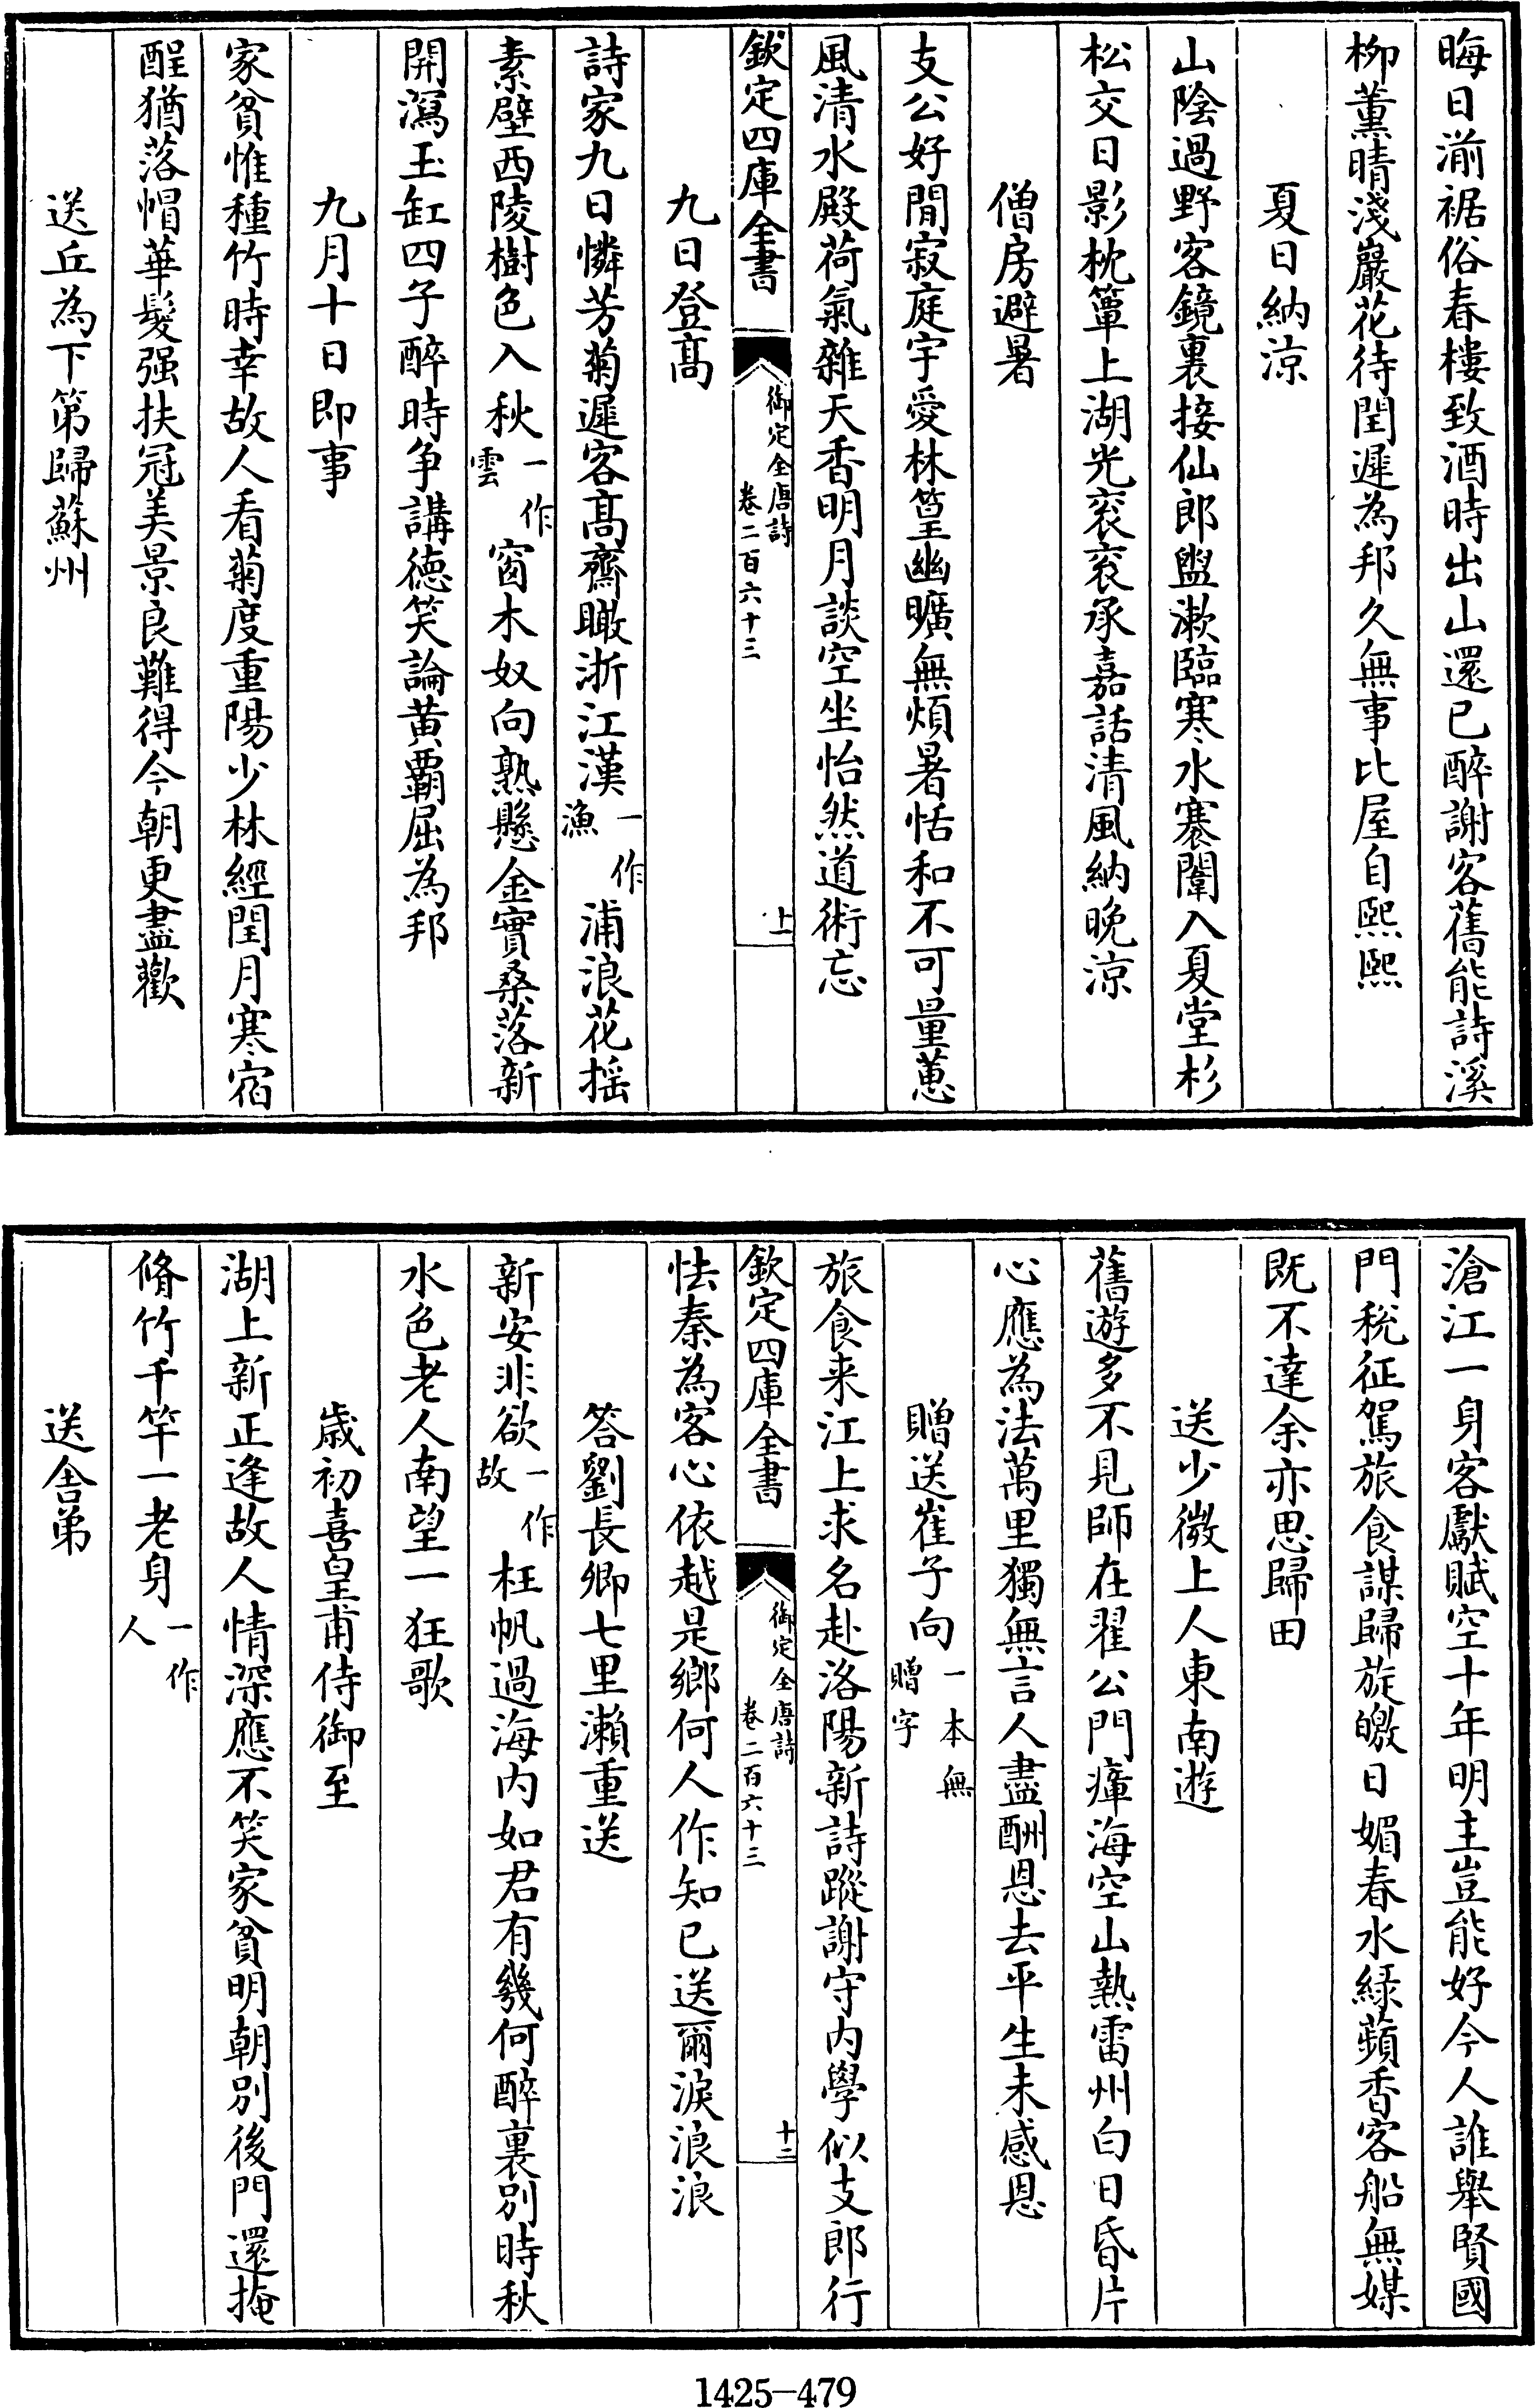 晦日湔裾俗春樓致酒時出山還已醉謝客舊能詩溪
柳薰晴淺巖花待閏遲為邦久無事比屋自熙熙
夏日納涼
山陰過野客鏡裏接仙郎盥漱臨寒水褰闈入夏堂杉
松交日影枕簟上湖光衮衮承嘉話清風納晚涼
僧房避暑
支公好閒寂庭宇愛林篁幽曠無煩暑恬和不可量蕙
風清水殿荷氣雜天香明月談空坐怡然道術忘
欽定四庫全書
御定全唐詩
卷二百六十三
十一
九日登髙
詩家九日憐芳菊遲客髙齋瞰浙江漢一作漁浦浪花揺
素壁西陵樹色入秋一作雲窗木奴向熟懸金實桑落新
開瀉玉缸四子醉時争講徳笑論黄霸屈為邦
九月十日即事
家貧惟種竹時幸故人看菊度重陽少林經閏月寒宿
酲猶落帽華髮强扶冠美景良難得今朝更盡歡
送丘為下第歸蘇州
滄江一身客獻賦空十年明主豈能好今人誰舉賢國
門税征駕旅食謀歸旋皦日媚春水緑蘋香客船無媒
既不達余亦思歸田
送少微上人東南遊
舊遊多不見師在翟公門瘴海空山熱雷州白日昏片
心應為法萬里獨無言人盡酬恩去平生未感恩
贈送崔子向一本無贈字
旅食来江上求名赴洛陽新詩蹤謝守内學似支郎行
怯秦為客心依越是鄉何人作知已送爾淚浪浪
答劉長卿七里瀨重送
新安非欲一作故枉帆過海内如君有幾何醉裏别時秋
水色老人南望一狂歌
歳初喜皇甫侍御至
湖上新正逢故人情深應不笑家貧明朝别後門還掩
脩竹千竿一老身一作人
送舎弟
欽定四庫全書
御定全唐詩
卷二百六十三
十二
1425-479